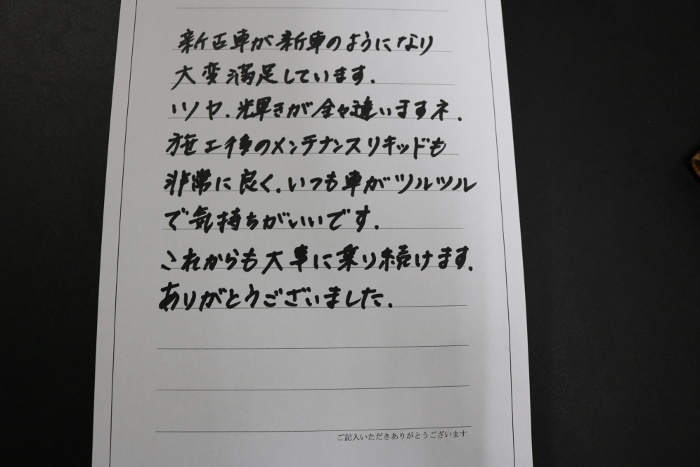 新古車が新車のようになり
大変満足しています.
ツヤ.輝きが全々違いますネ.
施工後のメンテナンスリキッドも
非常に良く.いつも車がツルツル
で気持ちがいいです.
これからも大事に乗り続けます.
ありがとうございました.
ご記入いただきありがとうございます